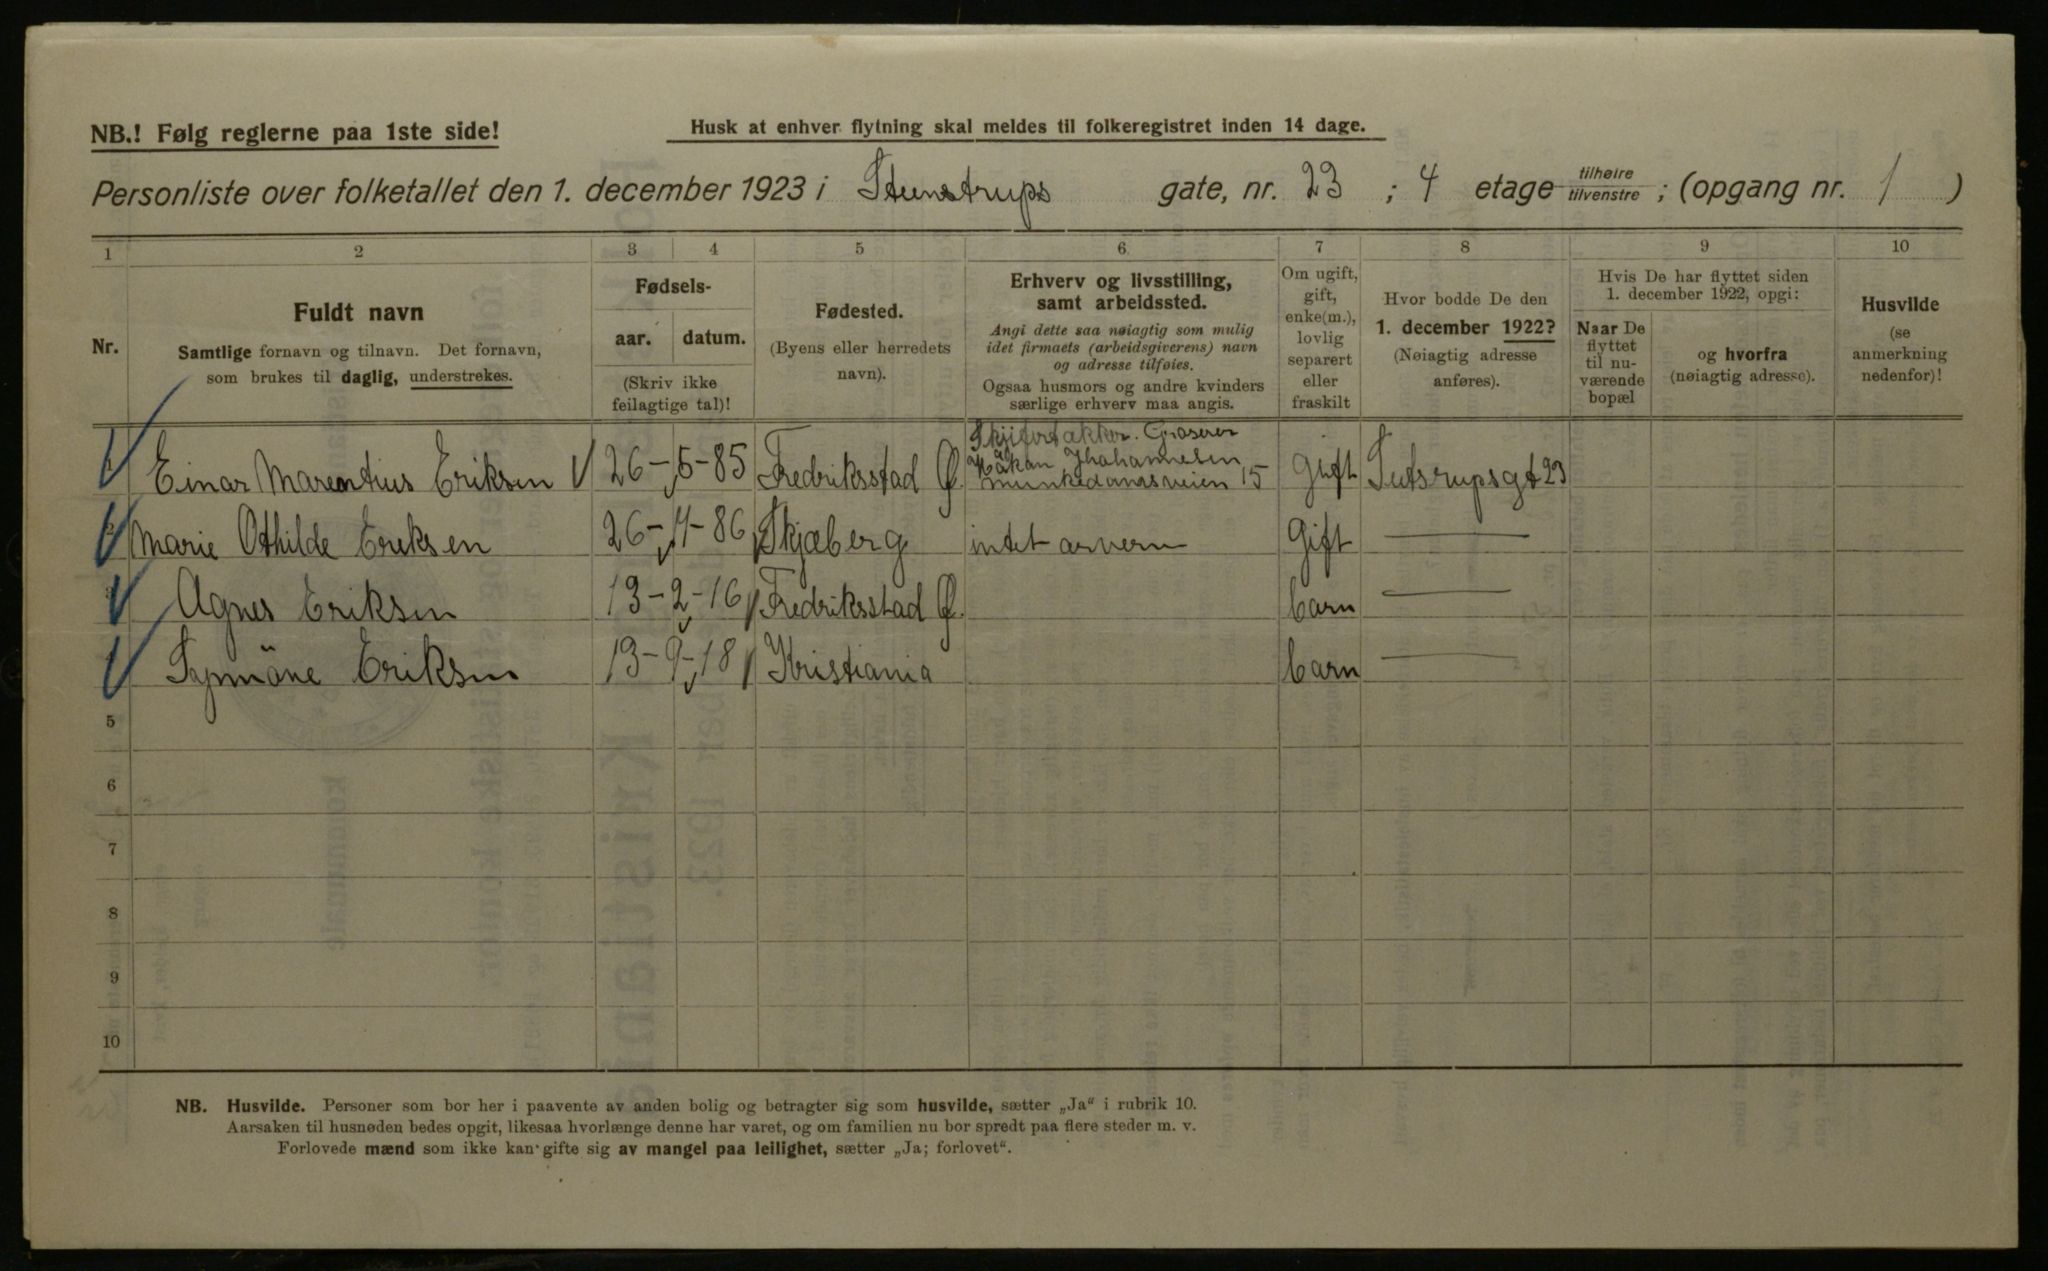 NB.! Følg reglerne paa 1ste side!
Husk at enhver flytning skal meldes til folkeregistret inden 14 dage.
Personliste over folketallet den 1. december 1923 i Steenstrups gate, nr. 23 ; 4 etage tilhøire/tilvenstre ; (opgang nr. 1 )
1 2 3 4 5 6 7 8 9 10
Nr.
Fuldt navn
Samtlige fornavn og tilnavn. Det fornavn,
som brukes til daglig, understrekes.
Fødsels-
aar. datum.
(Skriv ikke
feilagtige tal)!
Fødested.
(Byens eller herredets
navn).
Erhverv og livsstilling,
samt arbeidssted.
Angi dette saa nøiagtig som mulig
idet firmaets (arbeidsgiverens) navn
og adresse tilføies.
Ogsaa husmors og andre kvinders
særlige erhverv maa angis.
Om ugift,
gift,
enke(m.),
lovlig
separert
eller
fraskilt
Hvor bodde De den
1. december 1922?
(Nøiagtig adresse
anføres).
Hvis De har flyttet siden
1. december 1922, opgi:
Naar De
flyttet
til nu-
værende
bopæl
og hvorfra
(nøiagtig adresse).
Husvilde
(se
anmerkning
nedenfor)!
1 Einar Marentius Eriksen 26-5-85 Fredriksstad Ø. Skjifertækker. Graserer
Håkan Jhohannesen
munkedamsveien 15 Gift Sutsrupsgt 23
2 Marie Othilde Ereksen 26-11-86 Skjæberg intet arvern Gift —
3 Agnes Eriksen 13-2-16 Fredriksstad Ø. barn —
Synnöne Eriksen 13-9-18 Kristiania barn —
5
6
7
8
9
10
NB. Husvilde. Personer som bor her i paavente av anden bolig og betragter sig som husvilde, sætter „Ja“ i rubrik 10.
Aarsaken til husnøden bedes opgit, likesaa hvorlænge denne har varet, og om familien nu bor spredt paa flere steder m. v.
Forlovede mænd som ikke kan gifte sig av mangel paa leilighet, sætter „Ja; forlovet“.